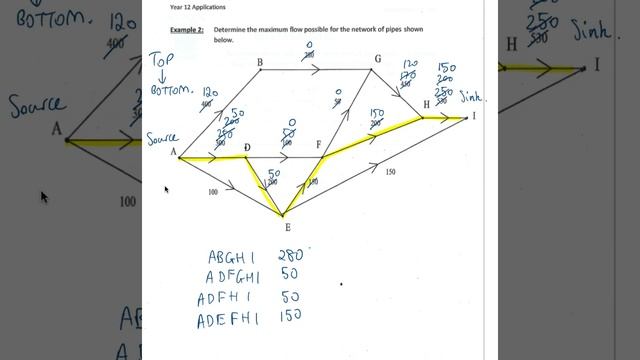 Year 12 Applications
Example 2: Determine the maximum flow possible for the network of pipes shown below.
TOP
↓
BOTTOM.
Source
Sink.
A
B
D
E
F
G
H
I
120
400
0
280
0
50
120
150
200
250
530
50
200
250
300
0
50
100
150
200
50
200
150
100
150
ABGHI 280
ADFGHI 50
ADFHI 50
ADEFHI 150
BOTTOM.
120
400
Source
A
100
250
530
H
Sink.
I